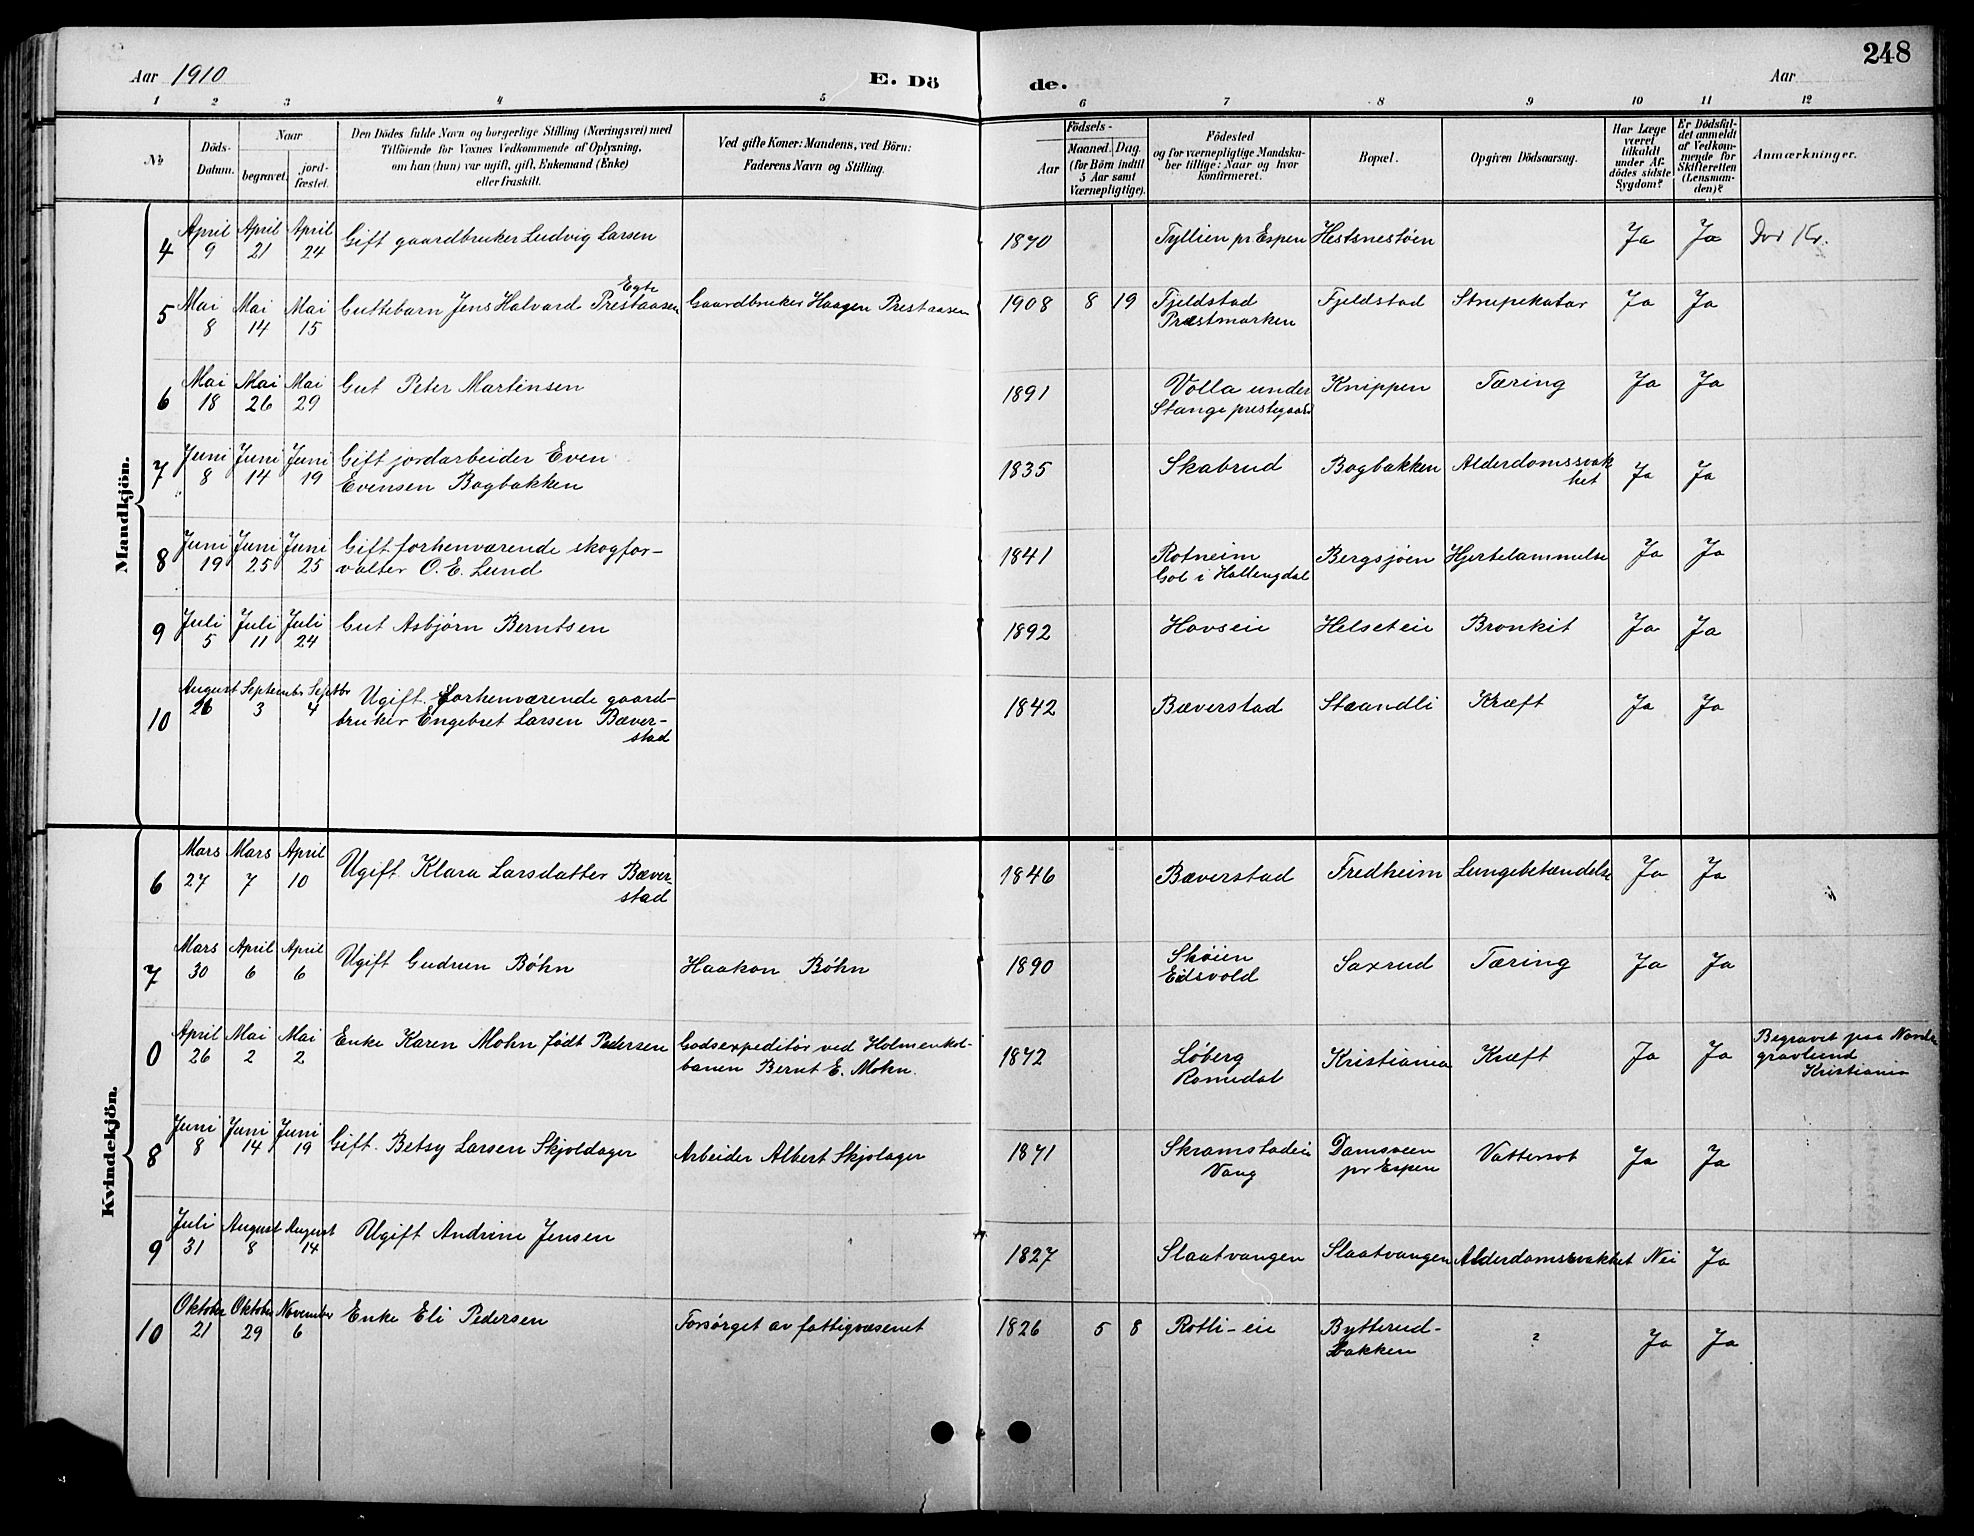 248
Aar 1910
E. Dö
de.
Aar
1 2 3 4 5 6 7 8 9 10 11 12
No
Döds-Datum.
Naar
begravet.
jord-fæstet.
Den Dödes fulde Navn og borgerlige Stilling (Næringsvei) med
Tilföiende for Voxnes Vedkommende af Oplysning,
om han (hun) var ugift, gift, Enkemand (Enke)
eller fraskilt.
Ved gifte Koner: Mandens, ved Börn:
Faderens Navn og Stilling.
Födsels-
Aar
Maaned. Dag.
(for Börn indtil
5 Aar samt
Værnepligtige).
Födested
og for værnepligtige Mandska-
ber tillige: Naar og hvor
konfirmeret.
Bopæl.
Opgiven Dödsaarsag.
Har Læge
været
tilkaldt
under Af-
dödes sidste
Sygdom?
Er Dödsfal-
det anmeldt
af Vedkom-
mende for
Skifteretten
(Lensman-
den)?
Anmærkninger.
Mandkjön.
4 April 9 April 21 April 24 Gift gaardbruker Ludvig Larsen 1870 Tyllien pr Espen Hestsnestøen Ja Ja
5 Mai 8 Mai 14 Mai 15 Guttebarn Jens Halvard Prestaasen Egte Gaardbruker Haagen Prestaasen 1908 8 19 Fjeldstad Præstmarken Fjeldstad Strupekatar Ja Ja
6 Mai 18 Mai 26 Mai 29 Gut Peter Martinsen 1891 Volla under Stange prestegaard Knippen Tæring Ja Ja
7 Juni 8 Juni 14 Juni 19 Gift jordarbeider Even
Evensen Bagbakken 1835 Skabrud Bagbakken Alderdomssvak
het Ja Ja
8 Juni 19 Juni 25 Juni 25 Gift forhenværende skogfor-
valter O. E. Lund 1841 Rotneim
Gol i Hallengdal Bergsjøen Hjertelammelse Ja Ja
9 Juli 5 Juli 11 Juli 24 Gut Asbjørn Berntsen 1892 Hovseie Helseteie Bronkit Ja Ja
10 August 26 September 3 Septbr 4 Ugift. Forhenværende gaard-
bruker Engebret Larsen Bæver-
stad 1842 Bæverstad Staandli Kræft Ja Ja
Kvindekjön.
6 Mars 27 Mars 7 April 10 Ugift Klara Larsdatter Bæver-
stad 1846 Bæverstad Fredheim Lungebetændelse Ja Ja
7 Mars 30 April 6 April 6 Ugift Gudrun Bøhn Haakon Bøhn 1890 Skøien
Eidsvold Saxrud Tæring Ja Ja
0 April 26 Mai 2 Mai 2 Enke Karen Mohn født Pedersen Godsexpeditør ved Holmenkol-
banen Bernt E. Mohn. 1872 Løberg
Romedal Kristiania Kræft Ja Ja Begravet paa Nordre
gravlund
Kristiania
8 Juni 8 Juni 14 Juni 19 Gift. Betsy Larsen Skjoldager Arbeider Albert Skjolager 1871 Skramstadeie
Vang Damsveen
pr Espen Vattersot Ja Ja
9 Juli 31 August 8 August 14 Ugift Andrine Jensen 1827 Slaatvangen Slaatvangen Alderdomssvakhet Nei Ja
10 Oktober 21 Oktober 29 November 6 Enke Eli Pedersen Forsørget av fattigvæsenet 1826 5 8 Rotli-eie Bytterud-
bakken ? Ja Ja